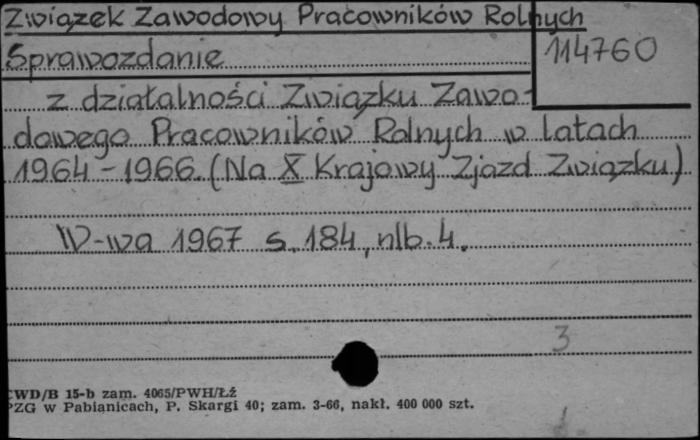 Związek Zawodowy Pracowników Rolnych
Sprawozdanie
114760
z działalności Związku Zawo-
dowego Pracowników Rolnych w latach
1964-1966. (Na X Krajowy Zjazd Związku)
W-wa 1967 s. 184, nlb. 4.
3
CWD/B 15-b zam. 4065/PWH/Łź
PZG w Pabianicach, P. Skargi 40; zam. 3-66, nakł. 400 000 szt.